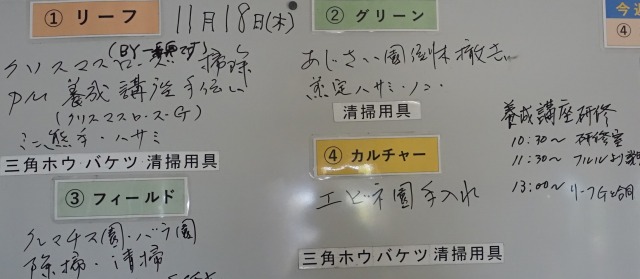 ① リーフ
11月18日(木)
クリスマスローズ 掃除
養成講座手伝い
(クリスマスローズ・G)
ミニ熊手・ハサミ
三角ホウ バケツ 清掃用具
③ フィールド
クレマチス園・バラ園
除掃・清掃
② グリーン
あじさい園 倒木撤去
剪定ハサミ・ノコ
清掃用具
④ カルチャー
エビネ園手入れ
三角ホウ バケツ 清掃用具
養成講座研修
10:30〜 研修室
11:30〜
13:00〜 リーフGと合同
④